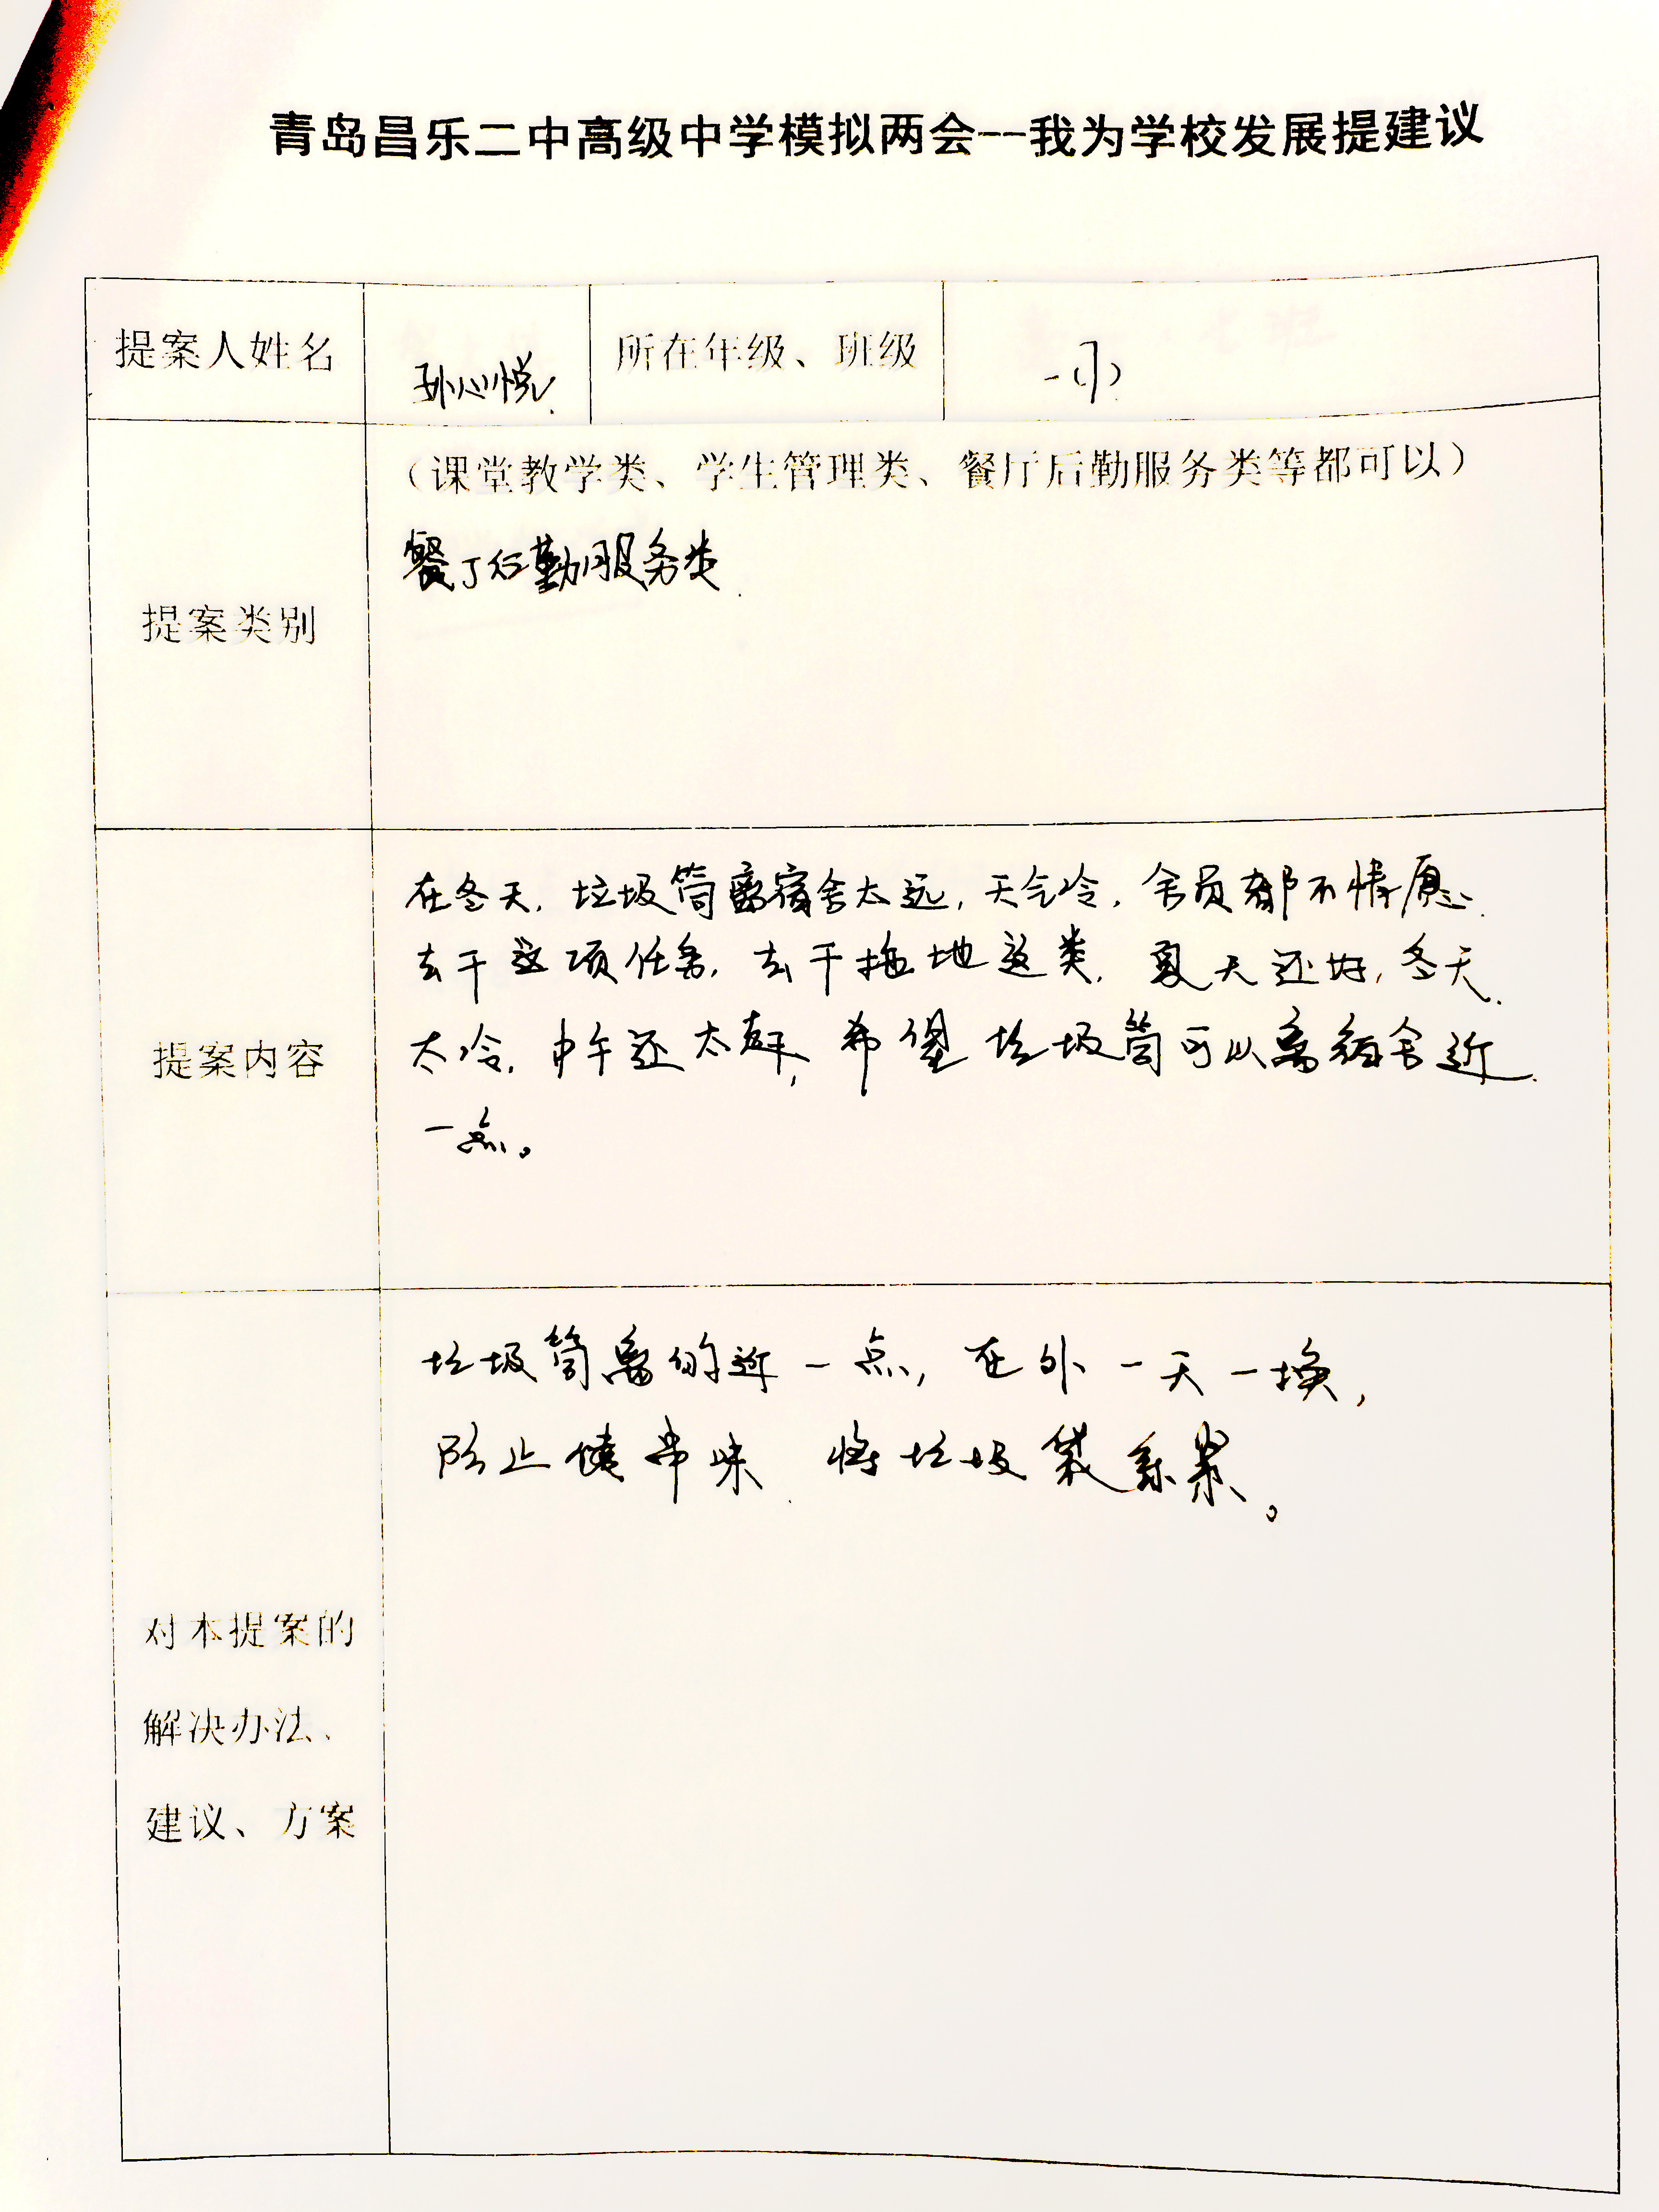 青岛昌乐二中高级中学模拟两会--我为学校发展提建议
提案人姓名 孙心悦 所在年级、班级
(课堂教学类、学生管理类、餐厅后勤服务类等都可以)
餐厅后勤服务类
提案类别
在冬天,垃圾筒离宿舍太远,天气冷,舍员都不情愿
去干这项任务,去干拖地这类,夏天还好,冬天
太冷,中午还太蔴,希望垃圾筒可以离宿舍近
一点。
提案内容
垃圾筒离的近一点,在外一天一换,
防止臭味 将垃圾袋系紧。
对本提案的
解决办法、
建议、方案